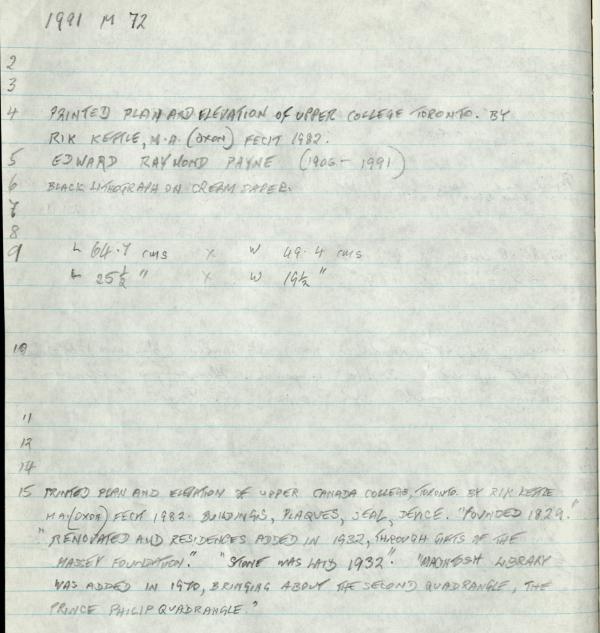 1991 M 72
2
3
4 PRINTED PLAN AND ELEVATION OF UPPER COLLEGE TORONTO. BY
RIK KETTLE, M.A. (OXON) FECIT 1982.
5 EDWARD RAYMOND PAYNE (1906 - 1991)
6 BLACK LITHOGRAPH ON CREAM PAPER.
7
8
9 L 64.7 cms X W 49.4 cms
L 25½" X W 19½"
10
11
12
14
15 PRINTED PLAN AND ELEVATION OF UPPER CANADA COLLEGE, TORONTO. BY RIK KETTLE
MA (OXON) FECIT 1982. BUILDINGS, PLAQUES, SEAL, "FOUNDED 1829."
"RENOVATED AND RESIDENCES ADDED IN 1932, THROUGH GIFTS OF THE
MASSEY FOUNDATION." "STONE WAS LAID 1932". "MACINTOSH LIBRARY
WAS ADDED IN 1970, BRINGING ABOUT THE SECOND QUADRANGLE, THE
PRINCE PHILIP QUADRANGLE."